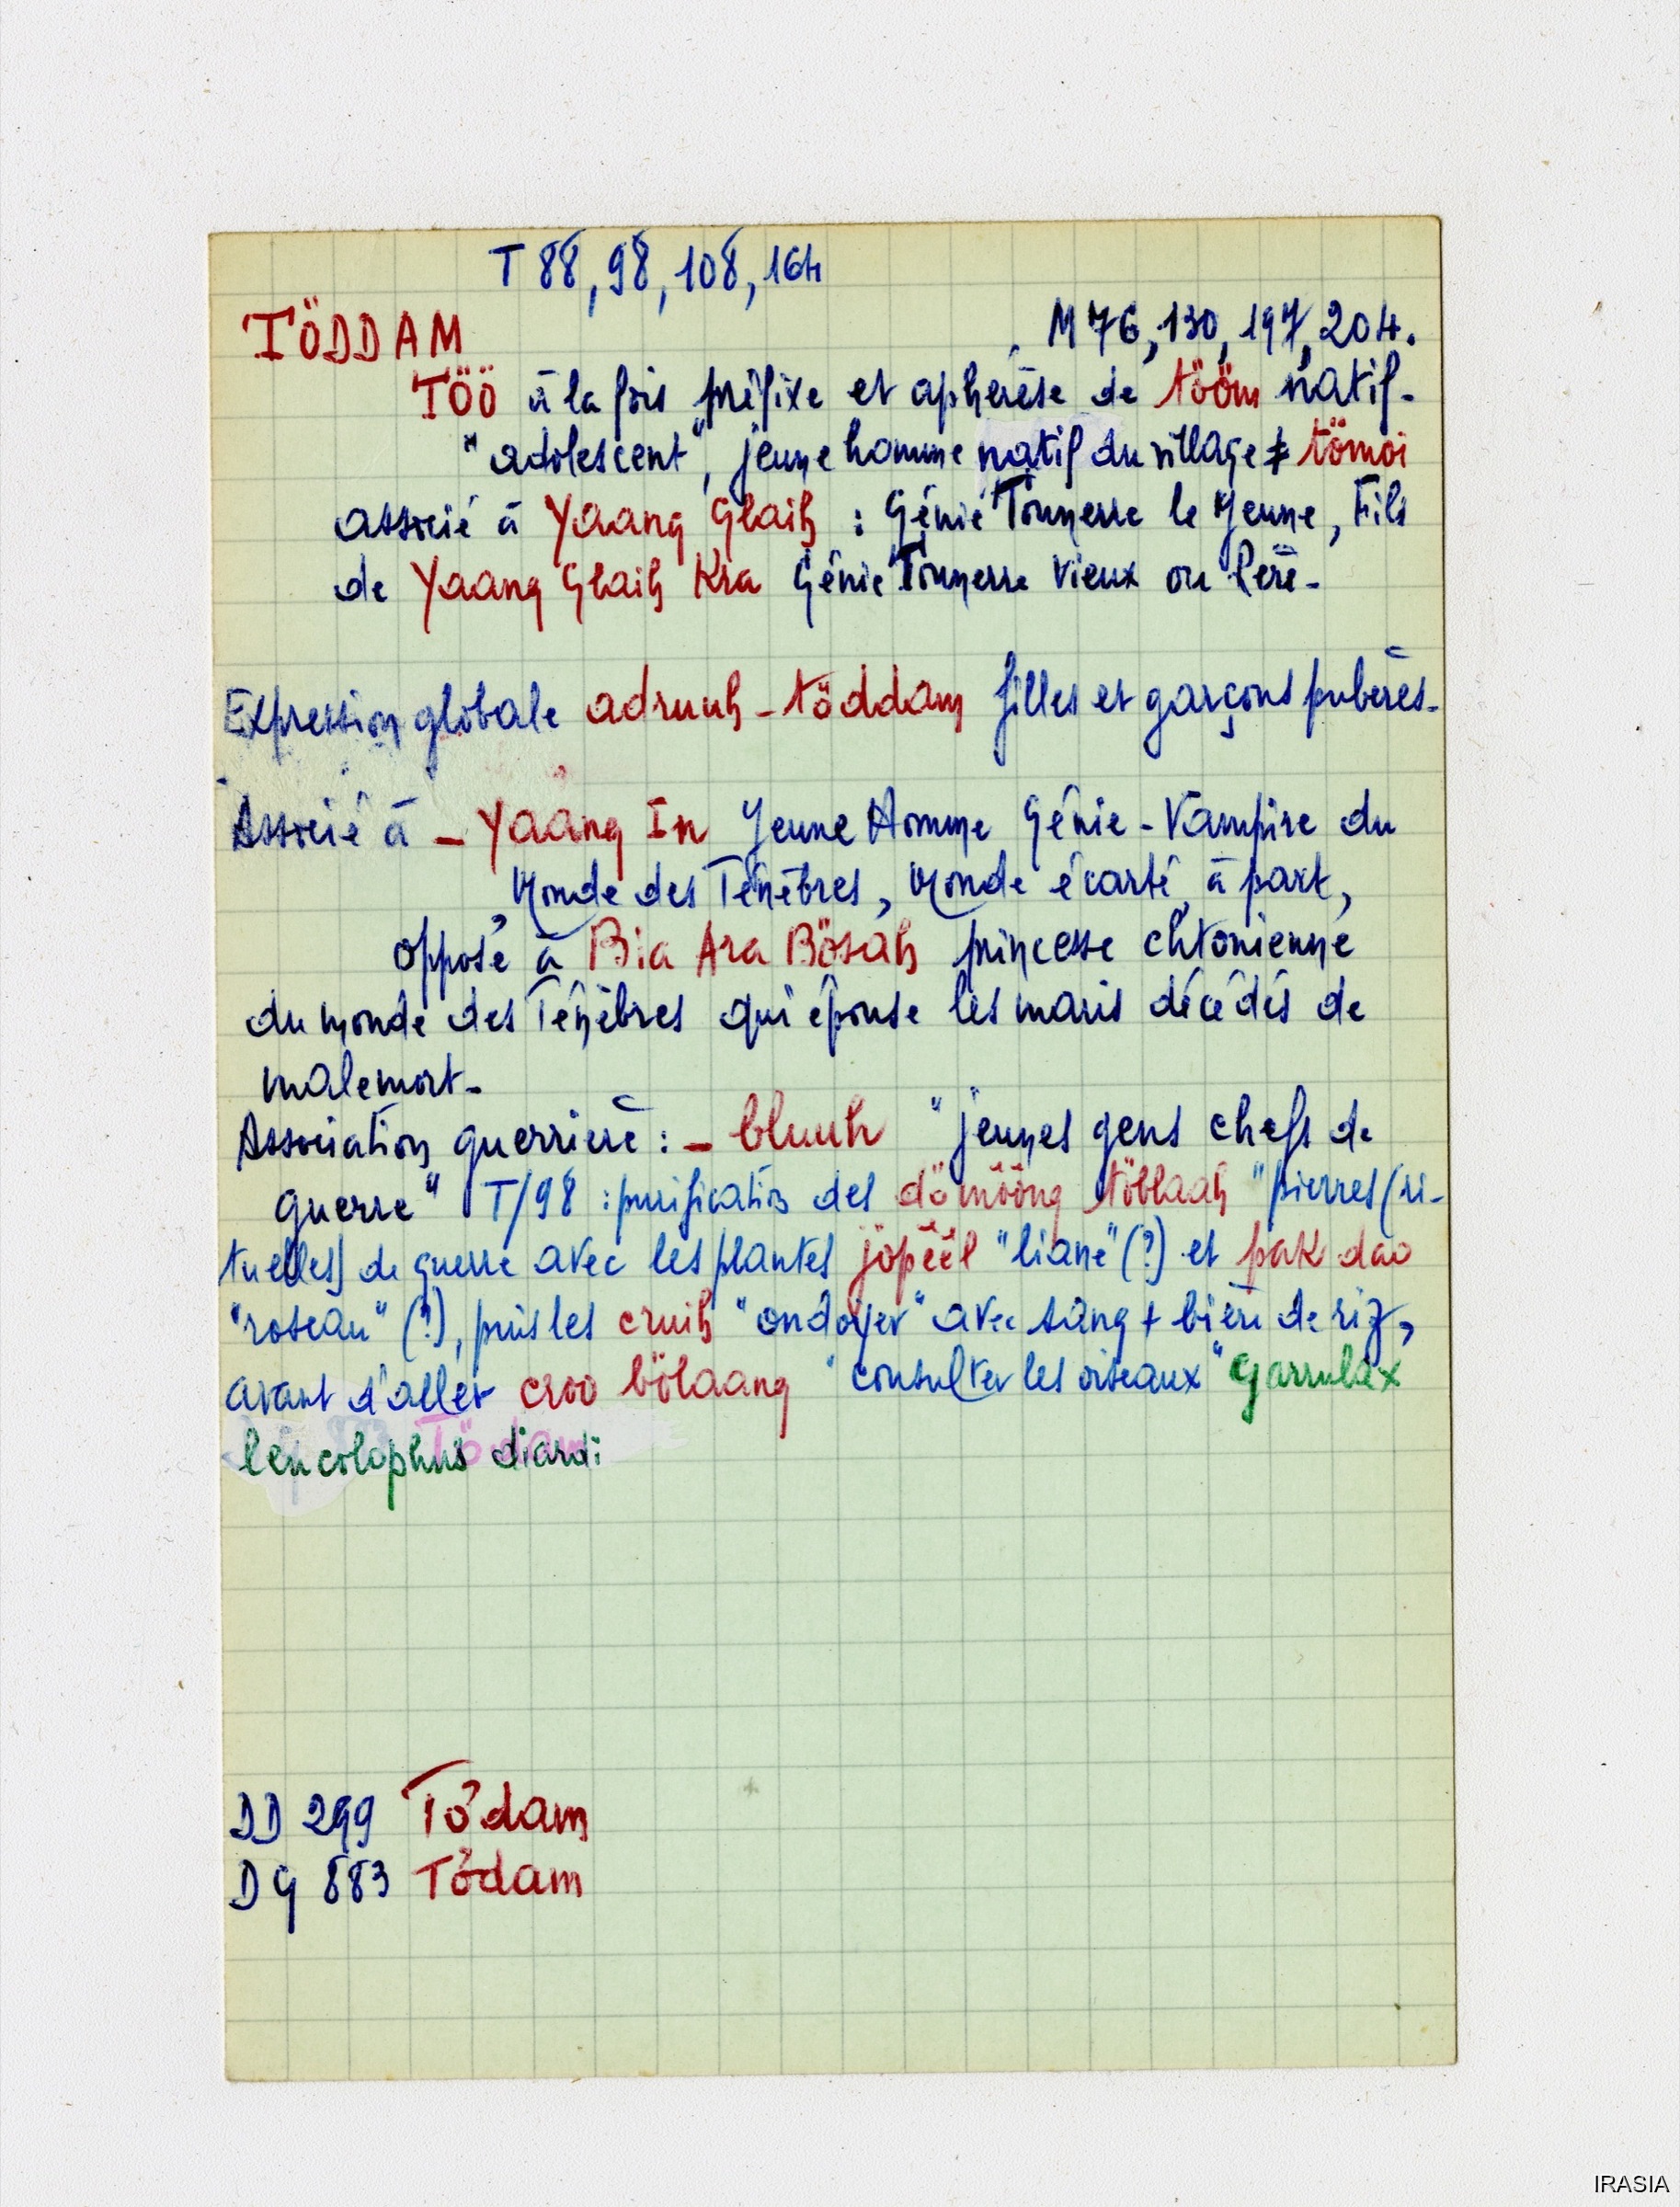 T 88, 98, 108, 164
TÖDDAM
M 76, 130, 197, 204.
TÖÖ à la fois préfixe et aphérèse de tööm natif.
"adolescent", jeune homme natif du village ≠ tömoi
associé à Yaang Glaih : Génie Tonnerre le Jeune, Fils
de Yaang Glaih Kra Génie Tonnerre Vieux ou Père.
Expression globale adruuh - töddam filles et garçons pubères.
Associé à - Yaang In Jeune Homme Génie-Vampire du
Monde des Ténèbres, Monde écarté, à part,
opposé à Bia Ara Bösah princesse chtonienne
du monde des Ténèbres qui épouse les maris décédés de
malemort.
Association guerrière : - bluuh "jeunes gens chefs de
guerre" T/98 : purification des dömööng töblaah "pierres (ri-
tuelles) de guerre avec les plantes jöpëël "liane" (?) et pak dao
"roseau" (?), puis les cruih "ondoyer" avec sang + bière de riz,
avant d'aller croo bölaang "consulter les oiseaux" Garrulax
leucolophus diardi
DD 299 Tơdam
DG 883 Tơdam
IRASIA